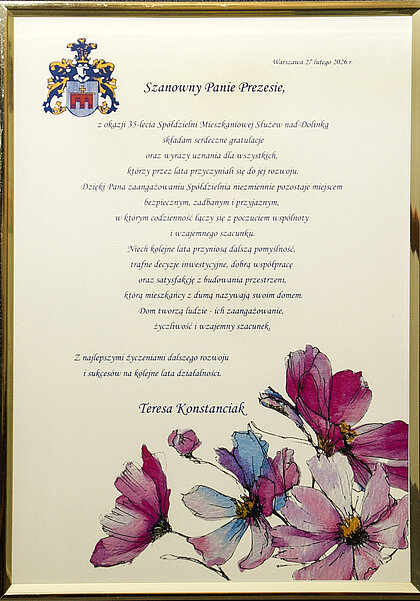 Warszawa 27 lutego 2026 r.
Szanowny Panie Prezesie,
z okazji 35-lecia Spółdzielni Mieszkaniowej Służew nad Dolinką
składam serdeczne gratulacje
oraz wyrazy uznania dla wszystkich,
którzy przez lata przyczyniali się do jej rozwoju.
Dzięki Pana zaangażowaniu Spółdzielnia niezmiennie pozostaje miejscem
bezpiecznym, zadbanym i przyjaznym,
w którym codzienność łączy się z poczuciem wspólnoty
i wzajemnego szacunku.
Niech kolejne lata przyniosą dalszą pomyślność,
trafne decyzje inwestycyjne, dobrą współpracę
oraz satysfakcję z budowania przestrzeni,
którą mieszkańcy z dumą nazywają swoim domem.
Dom tworzą ludzie - ich zaangażowanie,
życzliwość i wzajemny szacunek.
Z najlepszymi życzeniami dalszego rozwoju
i sukcesów na kolejne lata działalności.
Teresa Konstanciak